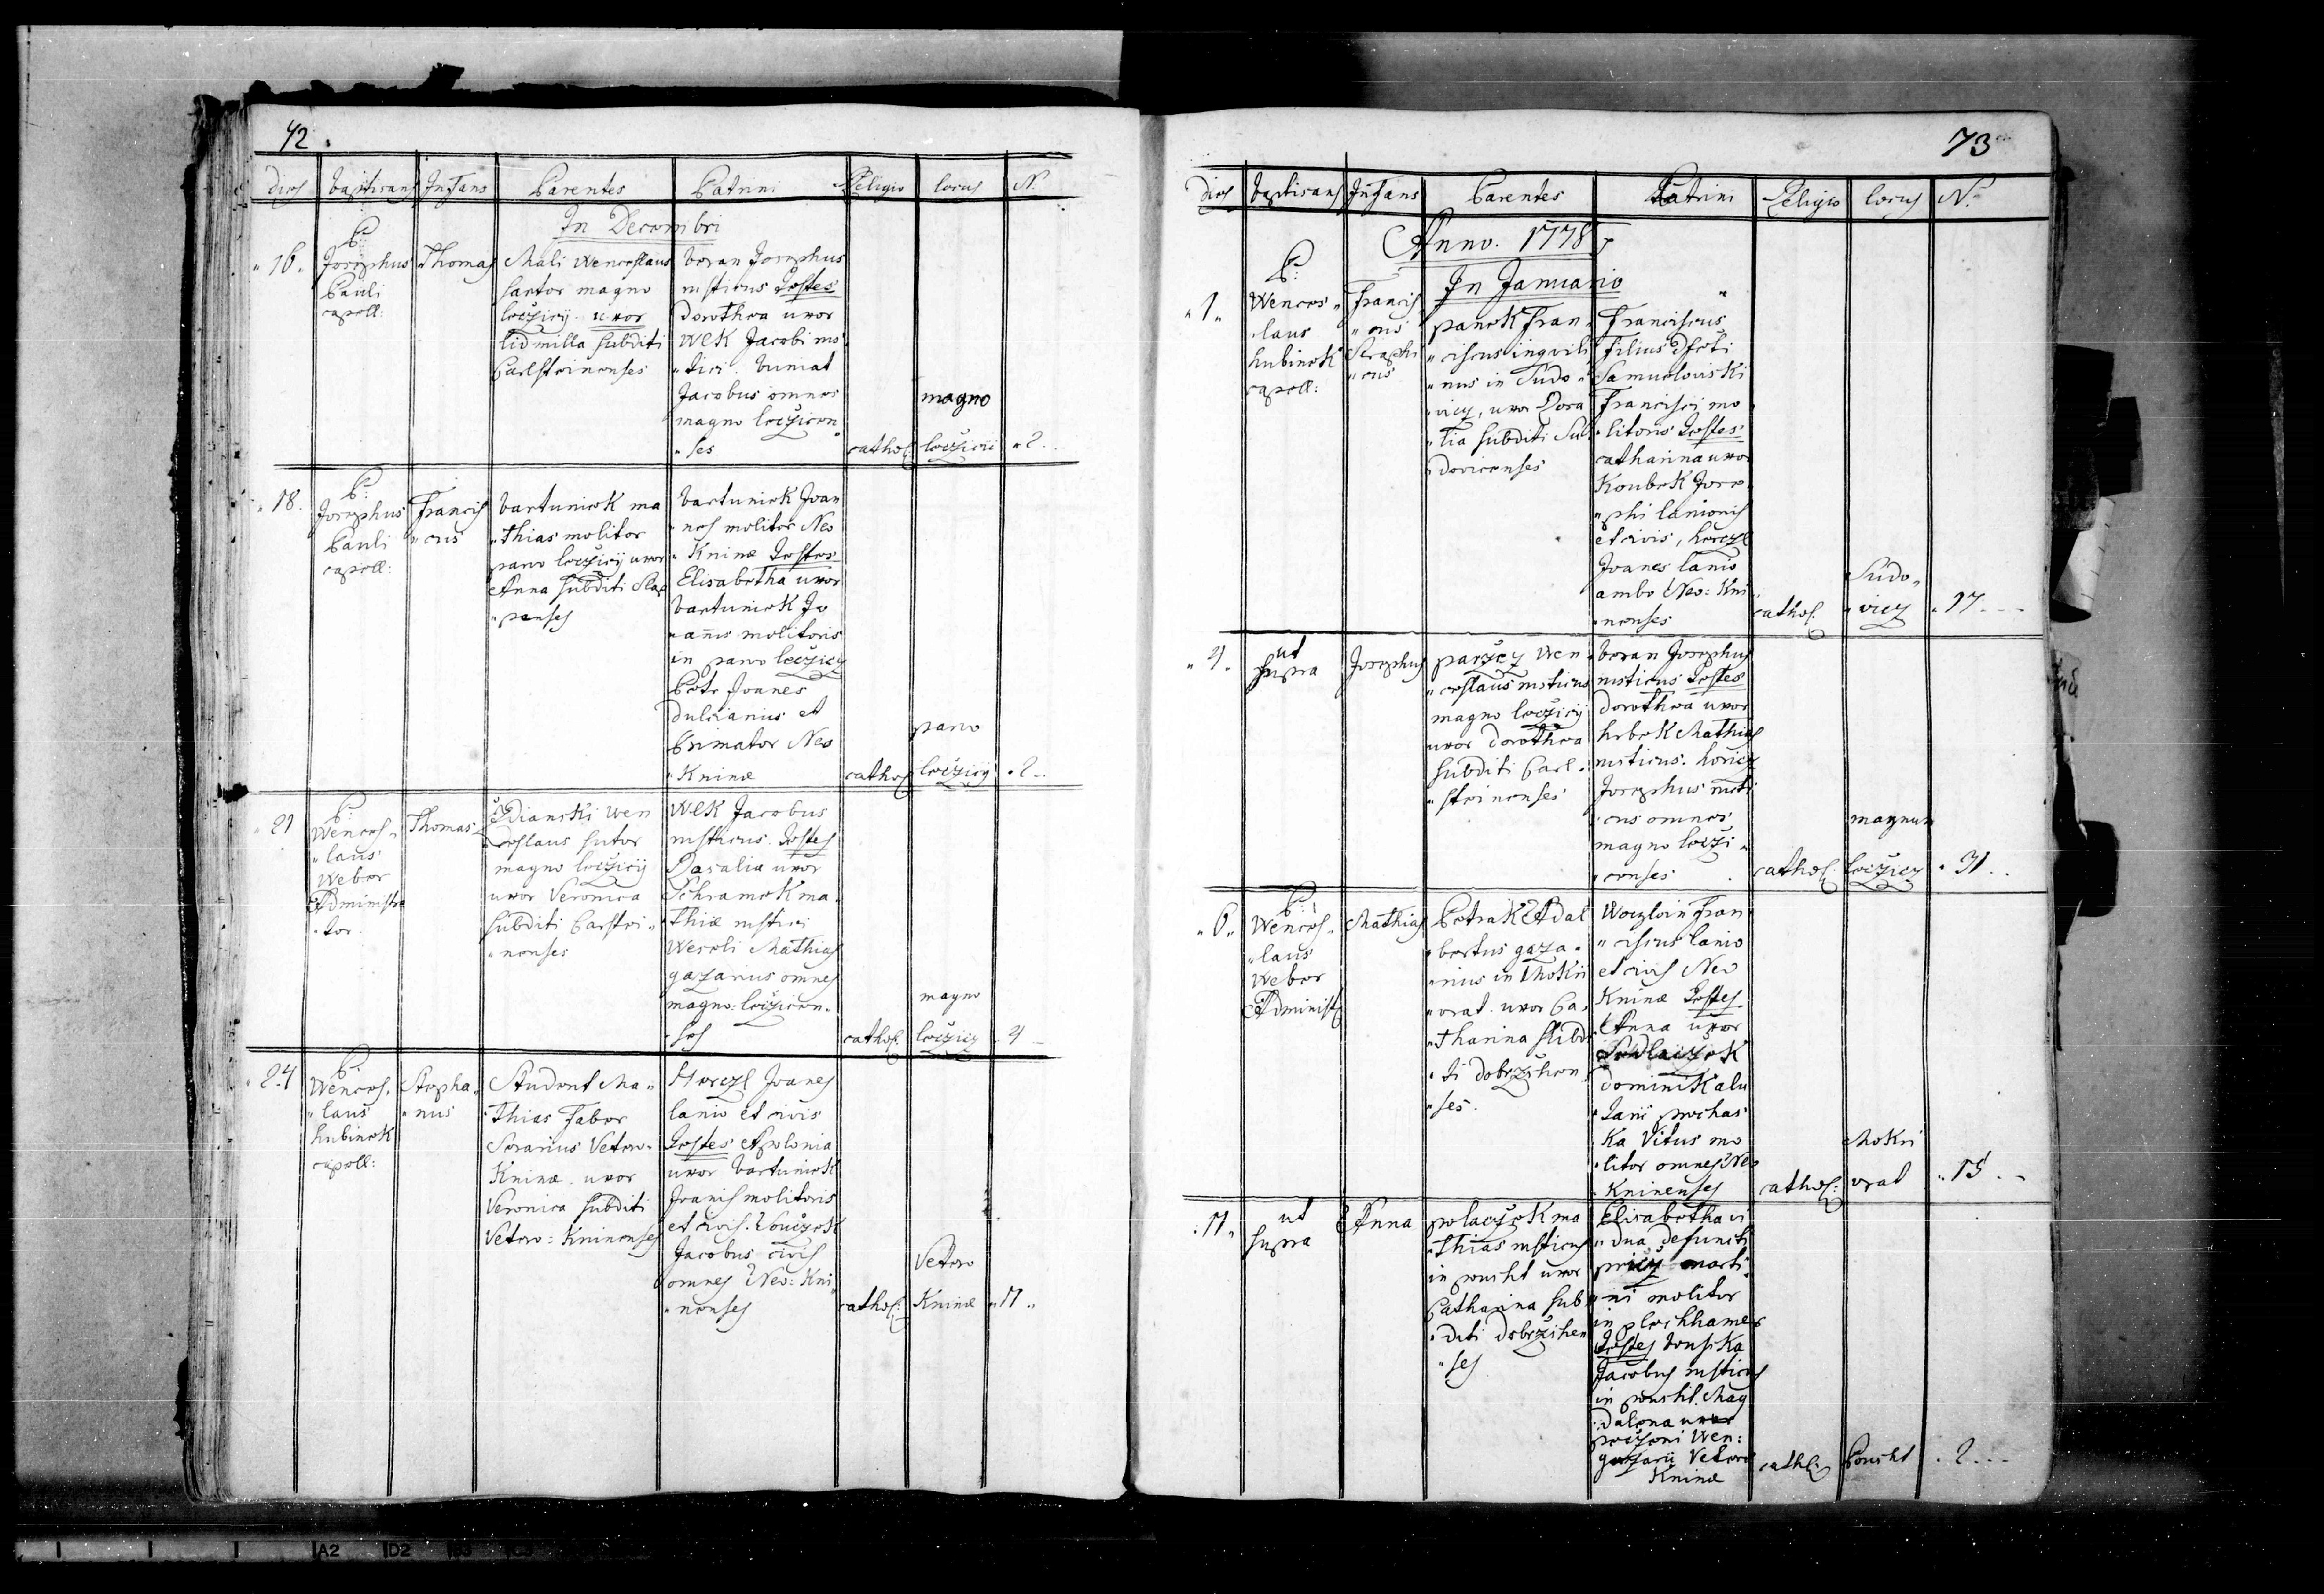 72.
dies baptisans Infans Parentes Patrini Religio locus N.
In Decembri
16. P: Josephus Pauli capell:
Thomas
Mali Wenceslaus
sartor magno
leczicii uxor
lidmilla subditi
Carlsteinenses
beran Josephus
rusticus Testes
dorothea uxor
Wlk Jacobi rus
tici. buniat
Jacobus omnes
magno leczicen
ses
cathol:
magno
leczicii
2.
18.
P:
Josephus
Pauli
capell:
Francis
cus
bartuniek ma
thias molitor
parvo leczicij uxor
Anna subditi Slap
penses
bartuniek Joan
nes molitor Neo
Kninæ Testes
Elisabetha uxor
bartuniek Jo
annis molitoris
in parvo leczicy
Petr Joanes
dulcianius et
Primator Neo
Kninæ
cathol
parvo
leczicij
2.
21
P:
Wences
laus
Weber
Administra
tor
Thomas
Zdianski Wen
ceslaus sutor
magno leczicij
uxor Veronica
subditi Carstei
nenses
Wlk Jacobus
rusticus. Testes
Rosalia uxor
Schramek ma
thiæ rustici
Weseli Mathias
gazarius omnes
magno: leczicen
ses
cathol:
magno
leczicy
4
24
P:
Wences
laus
hubinek
capell:
Stepha
nus
Student Ma
thias Faber
Serarius Vetero
Kninæ. uxor
Veronica subditi
Vetero: Kninenses
Herczl Joanes
lanio et civis
Testes Apolonia
uxor bartuniek
Joanis molitoris
et civis.
Jacobus civis
omnes Neo: Kni
nenses
cathol:
Vetero
Kninæ
17
73
dies baptisans Infans Parentes Patrini Religio locus N.
Anno. 1778
In Januario
1
P:
Wences
laus
hubinek
capell:
Francis
cus
Seraphi
cus
panek Fran
ciscus inquili
nus in Sudo
vicz, uxor Rosa
lia subditi Su
dovicenses
Franciscus
filius
Samuelovski
Francisci mo
litoris Testes
catharina uxor
Koubek Jose
phi lanionis
et civis, herczl
Joanes lanio
ambo Neo: Kni
nenses
cathol.
Sudo
vicz
17
4.
ut
supra
Josephus
parzez Wen
ceslaus rusticus
magno leczicij
uxor dorothea
subditi Carl
steinenses
beran Josephus
rusticus Testes
dorothea uxor
hrbek Mathias
rusticus.
Josephus rusti
cus omnes
magno leczi
censes
cathol:
magnum
leczicz
31
6.
P:
Wences
laus
Weber
Administ
Mathias
Petrak Adal
bertus gaza
rius in Mokri
vrat. uxor Ca
tharina subdi
ti dobrzichen
ses.
Woczlvin Fran
ciscus lanio
et civis Neo
Kninæ Testes
Anna uxor
Sedlaczek
dominikalis
tarii prochas
ka Vitus mo
litor omnes Neo
Kninenses
cathol:
Mokri
vrat
15
11.
ut
supra
Anna
polaczek ma
thias rusticus
in pouscht uxor
Catharina sub
diti dobrzichen
ses
Elisabetha vi
dua defuncti
pricz marti
ni molitor
in plechhamer
Testes
Jacobus rusticus
in pouscht. Mag
dalena uxor
peczeni Wen:
gazarii Vetero
Kninæ
cathol:
Pouscht
2